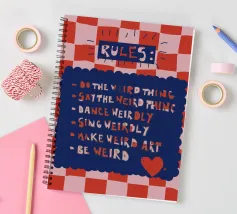 RULES:
- DO THE WEIRD THING
- SAY THE WEIRD THING
- DANCE WEIRDLY
- SING WEIRDLY
- MAKE WEIRD ART
- BE WEIRD